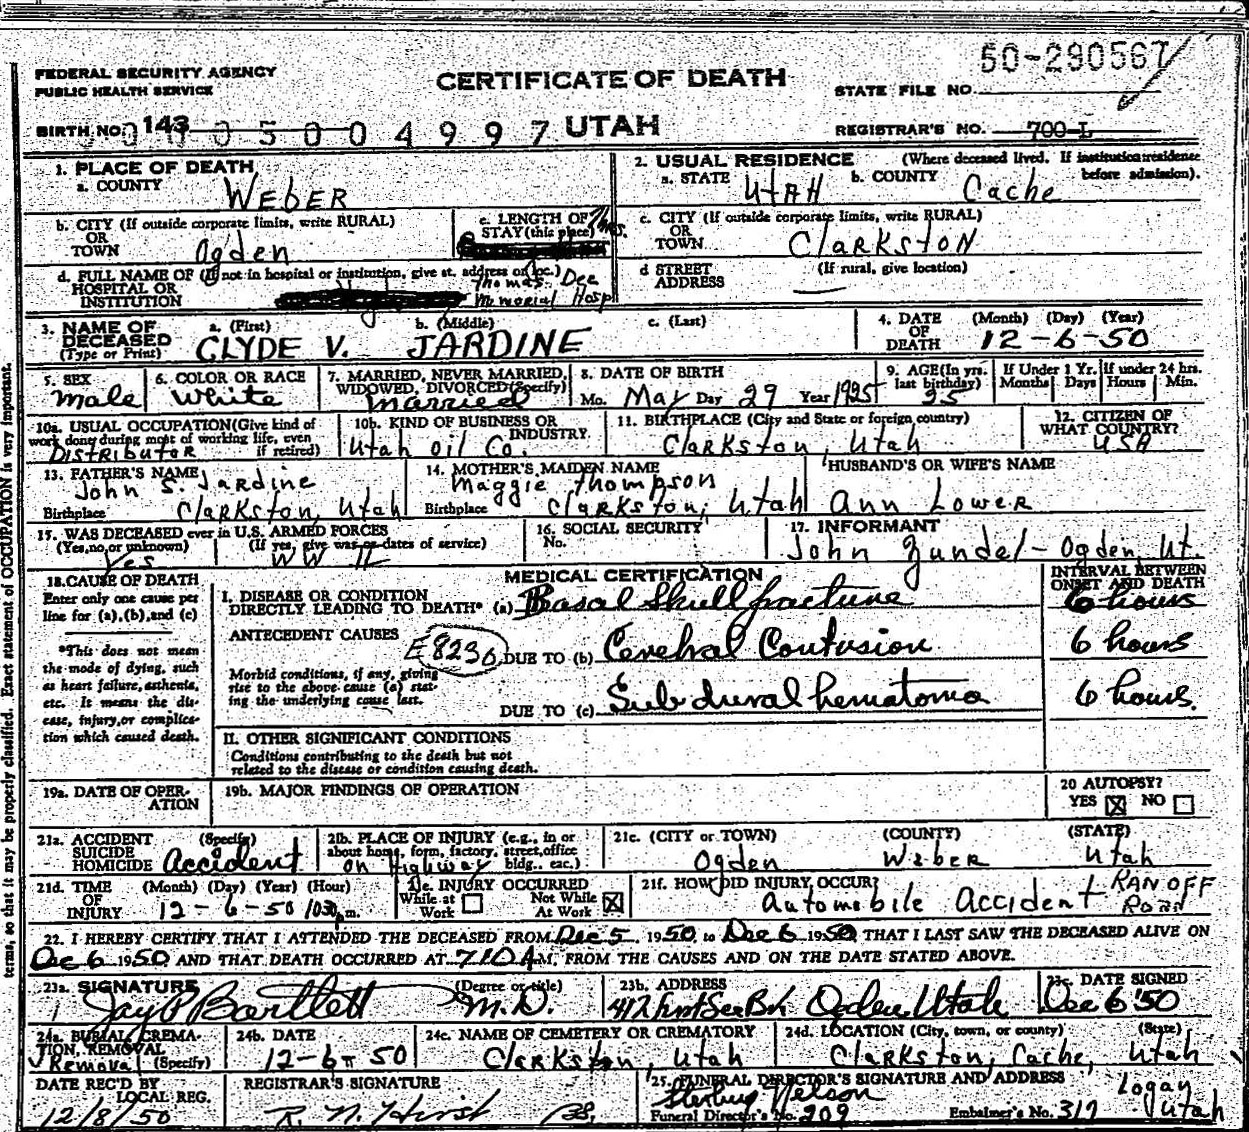 50-290567
FEDERAL SECURITY AGENCY
PUBLIC HEALTH SERVICE
CERTIFICATE OF DEATH
STATE FILE NO.
BIRTH NO. 143
005004997 UTAH
REGISTRAR'S NO. 700-L
1. PLACE OF DEATH
a. COUNTY WEBER
2. USUAL RESIDENCE (Where deceased lived. If institution: residence before admission).
a. STATE UTAH b. COUNTY Cache
b. CITY (If outside corporate limits, write RURAL) OR TOWN Ogden
c. LENGTH OF STAY (this place) 7 hrs.
c. CITY (If outside corporate limits, write RURAL) OR TOWN CLARKSTON
d. FULL NAME OF (If not in hospital or institution, give st. address or loc.) HOSPITAL OR INSTITUTION Thomas Dee Memorial Hosp
d STREET ADDRESS (If rural, give location) —
3. NAME OF DECEASED (Type or Print) a. (First) b. (Middle) c. (Last)
CLYDE V. JARDINE
4. DATE OF DEATH (Month) (Day) (Year) 12-6-50
5. SEX male
6. COLOR OR RACE White
7. MARRIED, NEVER MARRIED, WIDOWED, DIVORCED (Specify) Married
8. DATE OF BIRTH Mo. May Day 29 Year 1925
9. AGE (In yrs. last birthday) 25
If Under 1 Yr. Months Days
If under 24 hrs. Hours Min.
10a. USUAL OCCUPATION (Give kind of work done during most of working life, even if retired) DISTRIBUTOR
10b. KIND OF BUSINESS OR INDUSTRY Utah Oil Co.
11. BIRTHPLACE (City and State or foreign country) Clarkston, Utah
12. CITIZEN OF WHAT COUNTRY? USA
13. FATHER'S NAME John S. Jardine
Birthplace Clarkston, Utah
14. MOTHER'S MAIDEN NAME Maggie Thompson
Birthplace Clarkston, Utah
HUSBAND'S OR WIFE'S NAME
Ann Lower
15. WAS DECEASED ever in U.S. ARMED FORCES
(Yes, no, or unknown) (If yes, give war or dates of service)
Yes WW II
16. SOCIAL SECURITY No.
17. INFORMANT
John Zundel - Ogden, Ut.
18. CAUSE OF DEATH
Enter only one cause per line for (a), (b), and (c)
*This does not mean the mode of dying, such as heart failure, asthenia, etc. It means the disease, injury, or complication which caused death.
MEDICAL CERTIFICATION
INTERVAL BETWEEN ONSET AND DEATH
I. DISEASE OR CONDITION DIRECTLY LEADING TO DEATH* (a) Basal Skull fracture 6 hours
ANTECEDENT CAUSES E8230 DUE TO (b) Cerebral Contusion 6 hours
Morbid conditions, if any, giving rise to the above cause (a) stating the underlying cause last.
DUE TO (c) Subdural hematoma 6 hours.
II. OTHER SIGNIFICANT CONDITIONS
Conditions contributing to the death but not related to the disease or condition causing death.
19a. DATE OF OPERATION
19b. MAJOR FINDINGS OF OPERATION
20 AUTOPSY? YES ☒ NO ☐
21a. ACCIDENT SUICIDE HOMICIDE (Specify) Accident
21b. PLACE OF INJURY (e.g., in or about home, farm, factory, street, office bldg., etc.) on Highway
21c. (CITY or TOWN) (COUNTY) (STATE)
Ogden Weber Utah
21d. TIME OF INJURY (Month) (Day) (Year) (Hour) 12-6-50
21e. INJURY OCCURRED While at Work ☐ Not While At Work ☒
21f. HOW DID INJURY OCCUR? Automobile Accident RAN OFF ROAD
22. I HEREBY CERTIFY THAT I ATTENDED THE DECEASED FROM Dec 5 1950, to Dec 6 1950, THAT I LAST SAW THE DECEASED ALIVE ON
Dec 6 1950 AND THAT DEATH OCCURRED AT 710 A M. FROM THE CAUSES AND ON THE DATE STATED ABOVE.
23a. SIGNATURE (Degree or title)
Jay P Bartlett M.D.
23b. ADDRESS
412 Ogden Utah
23c. DATE SIGNED
Dec 6 '50
24a. BURIAL, CREMATION, REMOVAL (Specify) Removal
24b. DATE
12-6-50
24c. NAME OF CEMETERY OR CREMATORY
Clarkston, Utah
24d. LOCATION (City, town, or county) (State)
Clarkston, Cache, Utah
DATE REC'D BY LOCAL REG.
12/8/50
REGISTRAR'S SIGNATURE
R. N. Hirst
25. FUNERAL DIRECTOR'S SIGNATURE AND ADDRESS
Sterling Nelson Logan Utah
Funeral Director's No. 209 Embalmer's No. 317
terms, so that it may be properly classified. Exact statement of OCCUPATION is very important.